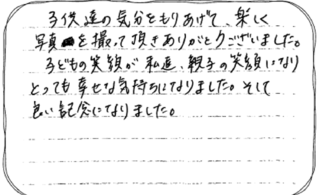 子供達の気分をもりあげて、楽しく
写真を撮って頂きありがとうございました。
子どもの笑顔が私達、親子の笑顔になり
とっても幸せな気持ちになりました。そして
良い記念になりました。